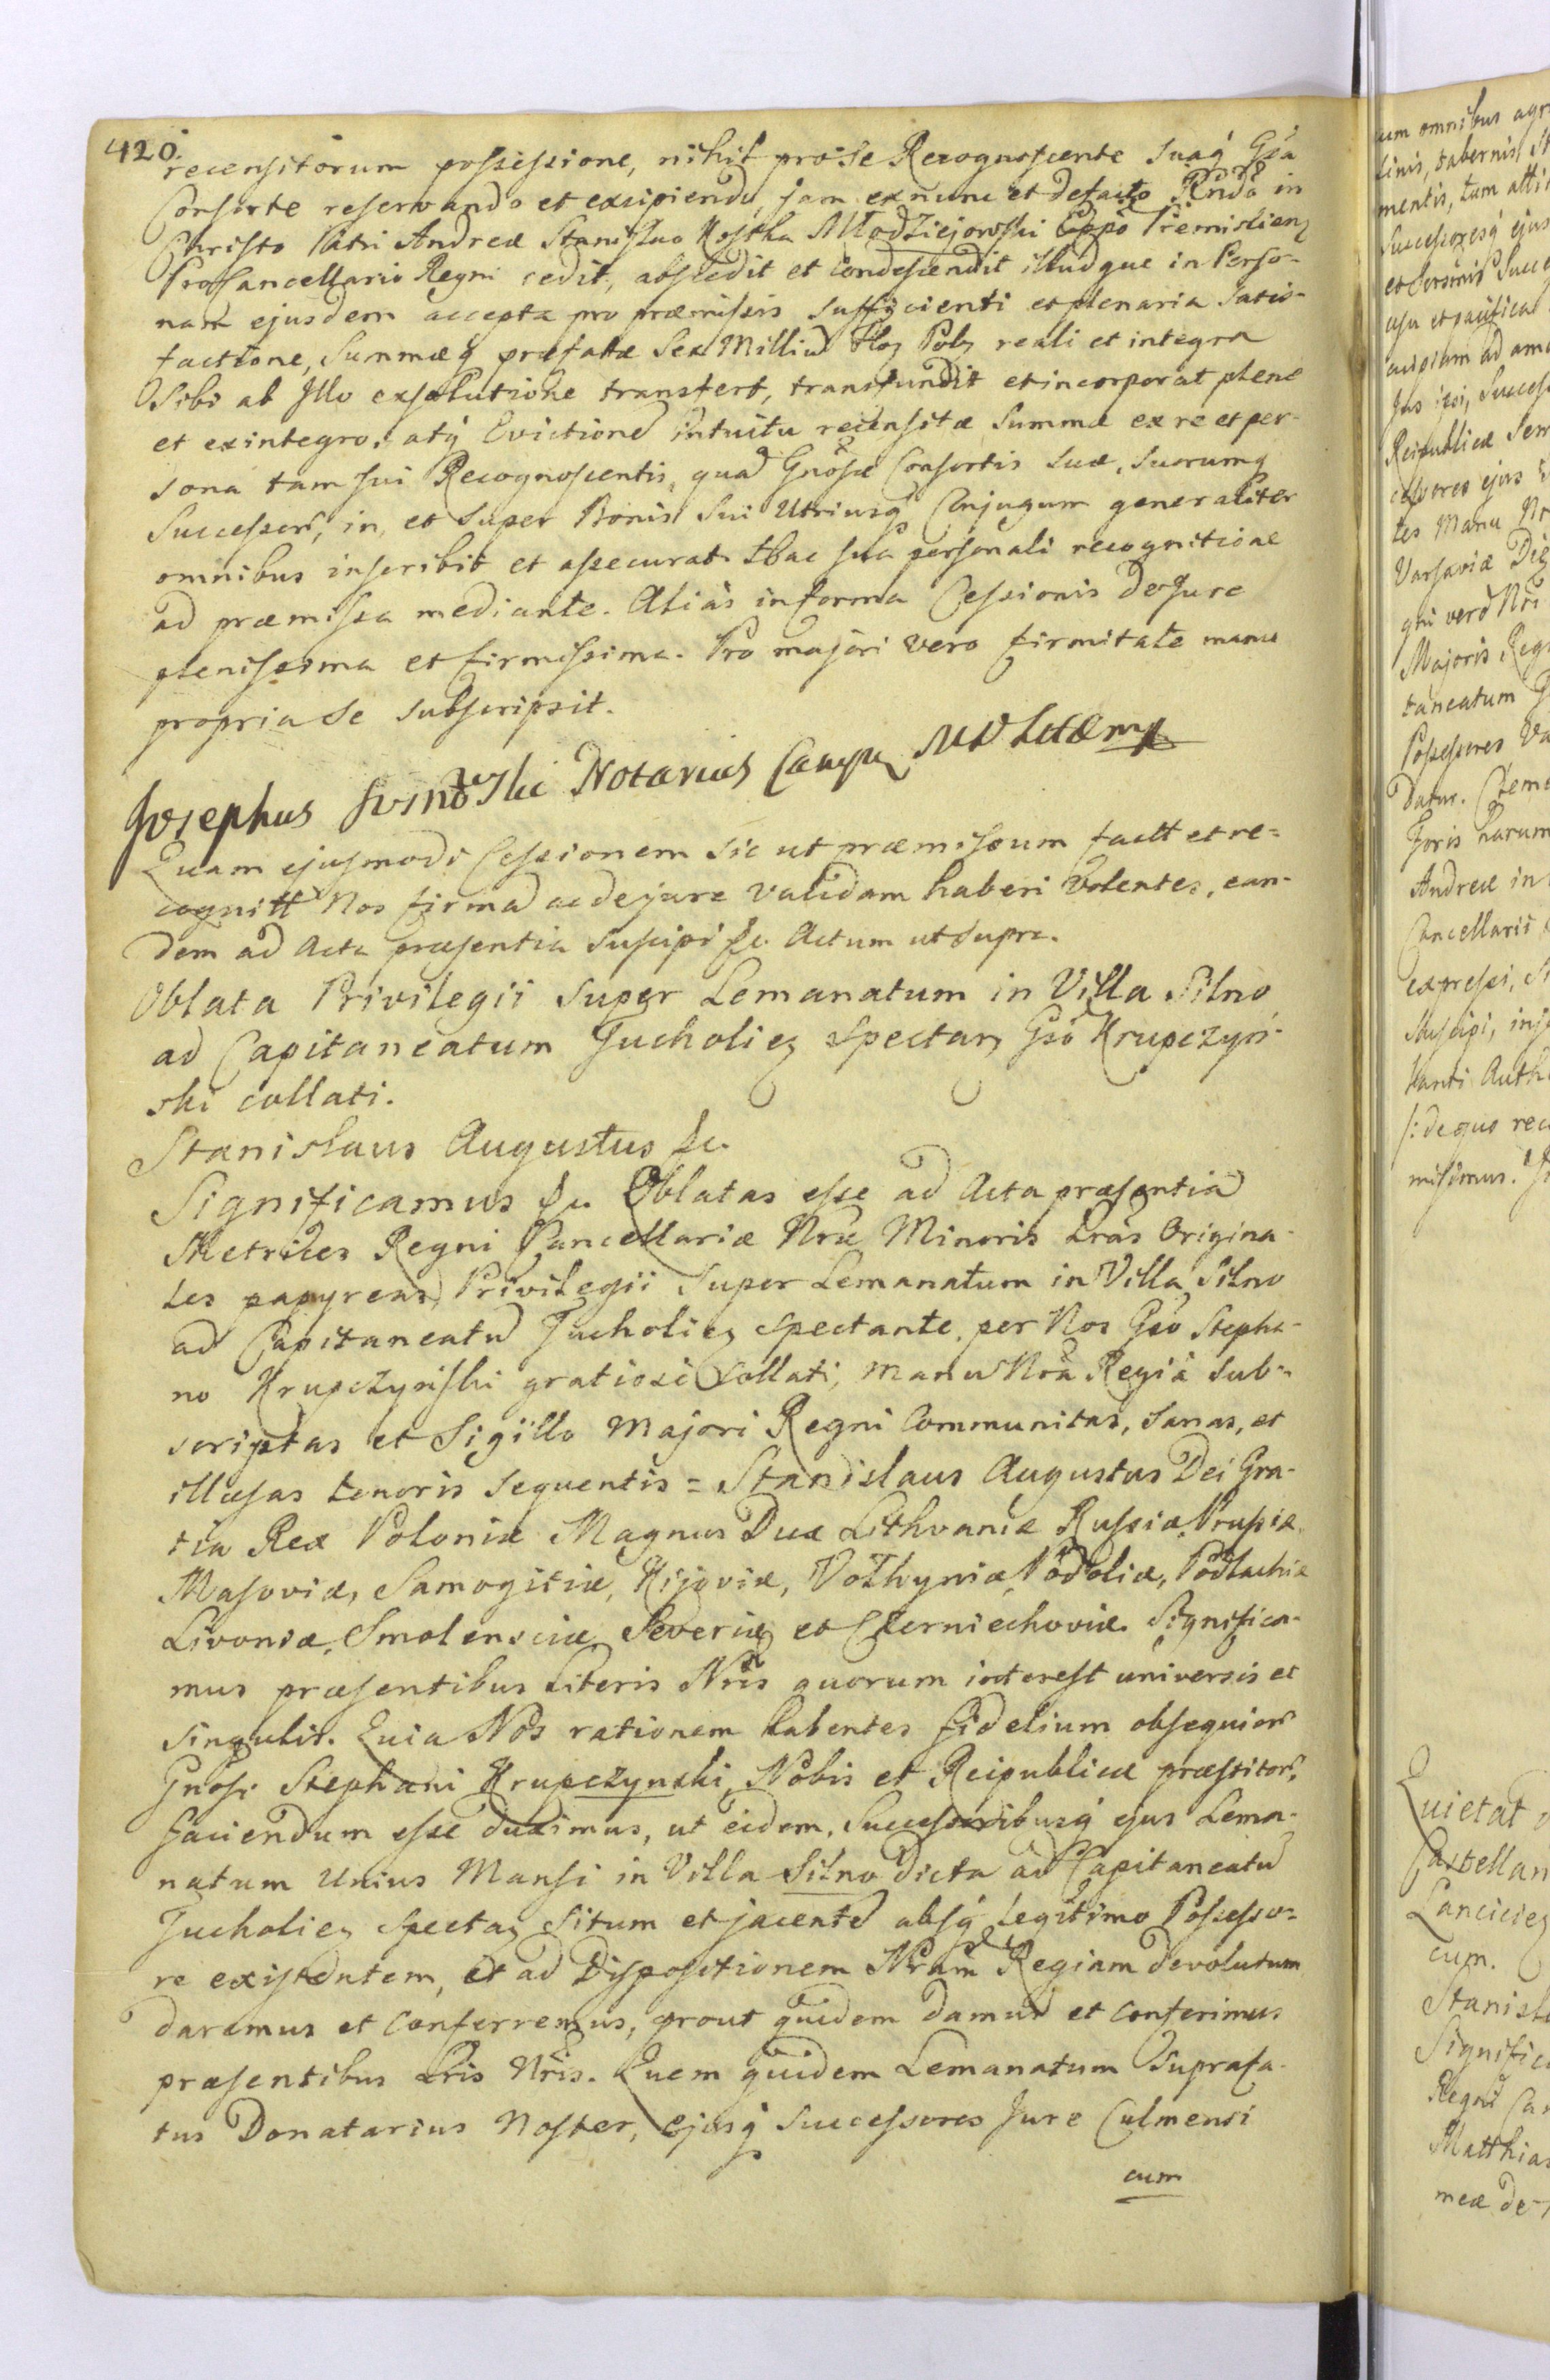 420.
recensitorum possessione, nihil pro se Recognoscente suaq́ Gsa
Consorte reservando et excipiendo, jam ex nunc et defacto Rndo in
Christo Patri Andreæ Stanislao Kostka Młodziejowski Eppo Premislien
ProCancellario Regni cedit, abscedit et condescendit illudque in Perso-
nam ejusdem accepta pro præmissis sufficienti et plenaria satis-
factione, Summæq́ præfatæ Sex Milliu Flor Pol reali et integra
Sibi ab Illo exsolutione transfert, transfundit et incorporat plene
et ex integro, atq́ Evictione intuitu recensitæ Summæ ex re et per-
sona tam sui Recognoscentis, qua Gnosæ Consortis suæ, suorumq́
Successor, in, et super Bonis sui Utriusq́ Conjugum generaliter
omnibus inscribit et assecurat. Hac sua personali recognitione
ad præmissa mediante. Alias in forma Cessionis de Jure
plenissima et firmissima. Pro majori vero firmitate manu
propria se subscripsit.
Josephus Notarius Camp
Quam ejusmodi Cessionem sic ut præmissum factt et re-
cognitt Nos firma ac de jure validam haberi volentes, ean-
dem ad Acta præsentia suscipi &c. Actum ut supra.
Oblata Privilegii super Lemanatum in Villa Silno
ad Capitaneatum Tucholien spectan Gso Krupczyń-
ski collati.
Stanislaus Augustus &c.
Significamus &c. Oblatas esse ad Acta præsentia
Metrices Regni Cancellariæ Nræ Minoris Lras Origina-
les papyreas Privilegii super Lemanatum in Villa Silno
ad Capitaneatu Tucholien spectante per Nos Gso Stepha-
no Krupczyński gratiose collati, manu Nra Regia sub-
scriptas et Sigillo Majori Regni Communitas, sanas, et
illæsas tenoris sequentis = Stanislaus Augustus Dei Gra-
tia Rex Poloniæ Magnus Dux Lithvaniæ Russiæ, Prussiæ
Masoviæ, Samogitiæ, Kijoviæ, Volhyniæ, Podoliæ, Podlachiæ
Livoniæ, Smolensciæ Severiæ et Czerniechoviæ. Significa-
mus præsentibus Literis Nris quorum interest universis et
singulis. Quia Nos rationem habentes fidelium obsequior
Gnosi Stephani Krupczynski, Nobis et Reipublicæ præstitor,
faciendum esse duximus, ut eidem, Successoribusq́ ejus Lema-
natum Unius Mansi in Villa Silno dicta ad Capitaneatu
Tucholien spectan situm et jacente absq́ legitimo Possesso-
re existentem, et ad Dispositionem Nram Regiam devolutum
daremus et conferremus, prout quidem damus et conferimus
præsentibus Lris Nris. Quem quidem Lemanatum suprafa-
tus Donatarius Noster, ejusq́ Successores Jure Culmensi
cum
cum omnibus agr
linis, tabernis, st
mentis, tum atti
Successoresq́ ejus
usu et pacifica
cuipiam ad
Jus ipsi, Success
Reipublicæ Sem
cessores ejus
tes Manu Nr
Varsaviæ Die
gni vero Nri
Majoris Reg
taneatum
Possessores Va
Datur.
Joris harum
Andreæ in
Cancellarii
expressi, si
suscipi, ins
Hanti Auth
/: de quo rec
misimus.
Quietat
Castellan
Lanciciens
cum.
Stanisla
Significa
Regni Ca
Matthias
meæ de